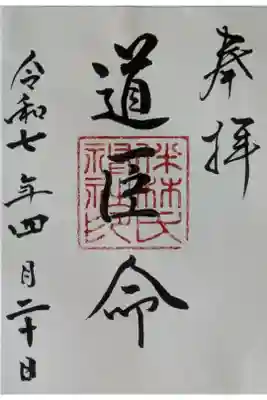 奉拝
道臣命
令和七年四月二十日